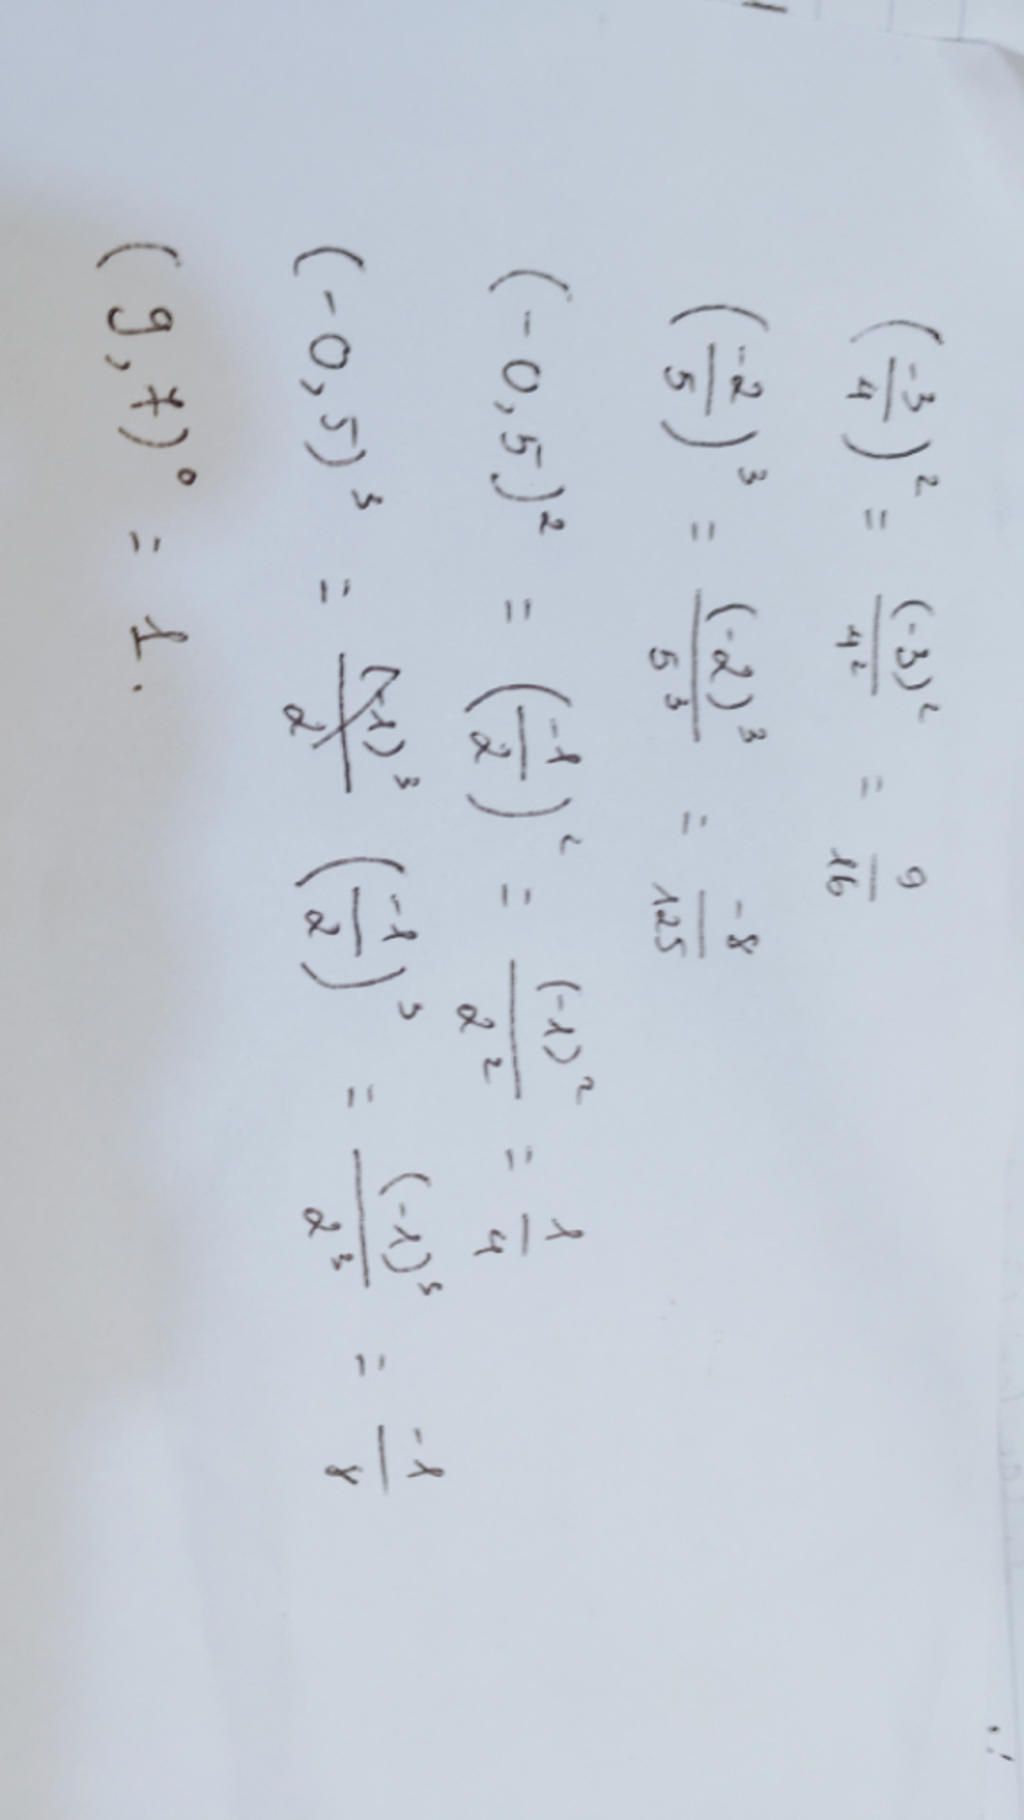 (-3/4)² = (-3)²/4² = 9/16
(-2/5)³ = (-2)³/5³ = -8/125
(-0,5)² = (-1/2)² = (-1)²/2² = 1/4
(-0,5)³ = (-1/2)³ = (-1)³/2³ = -1/8
(9,7)⁰ = 1.